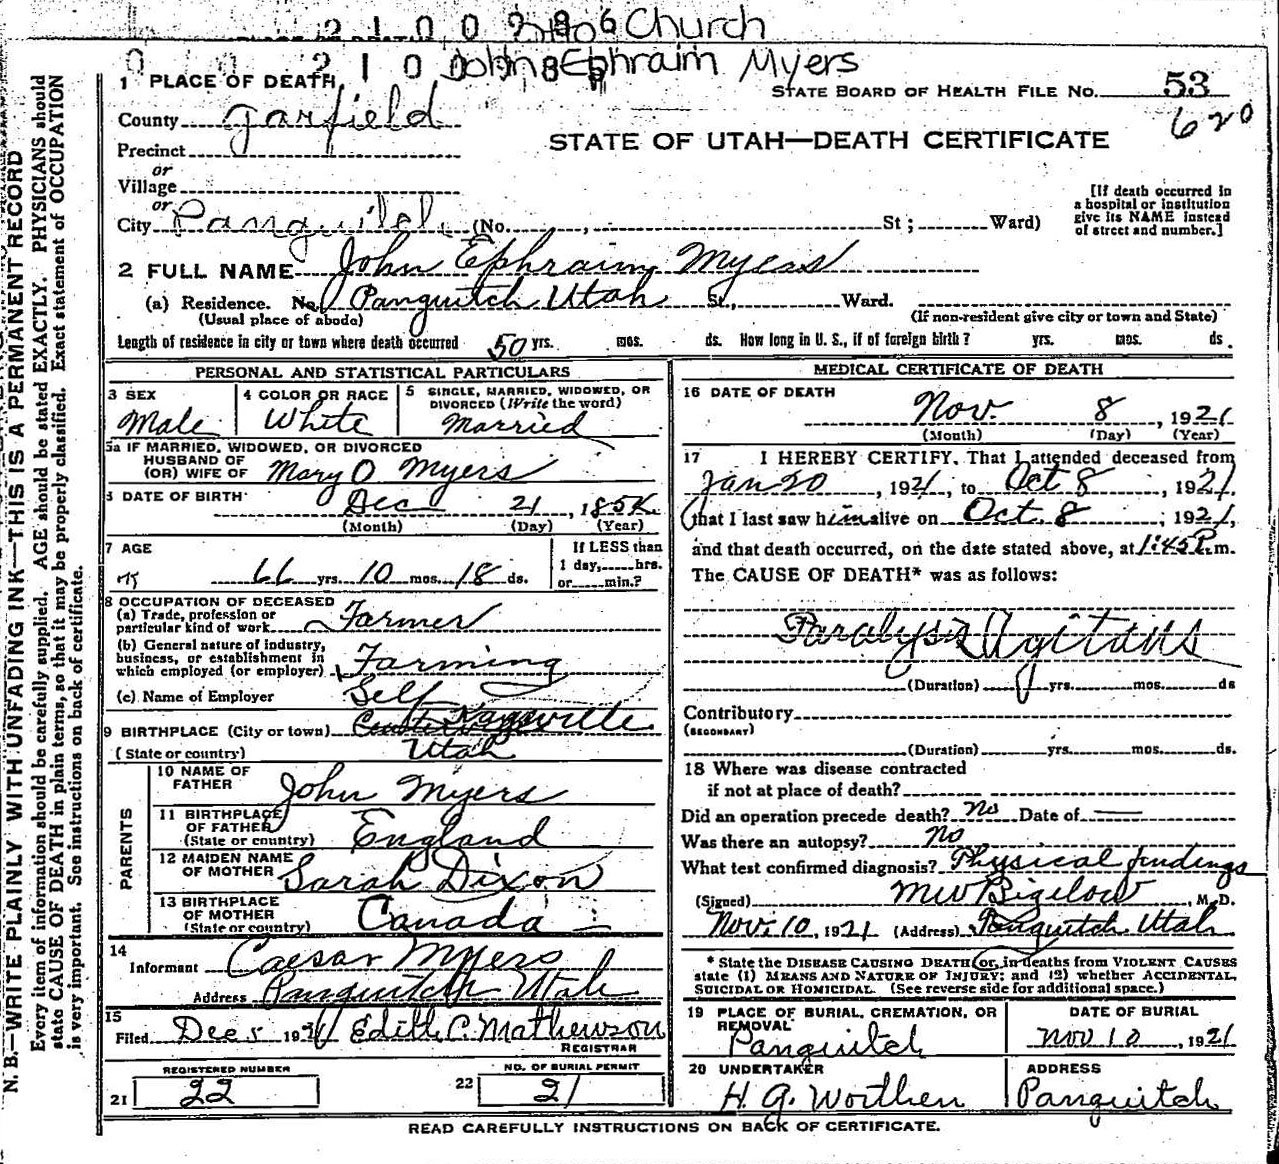 Church
John Ephraim Myers
1 PLACE OF DEATH
STATE BOARD OF HEALTH FILE NO. 53
620
County Garfield
STATE OF UTAH—DEATH CERTIFICATE
Precinct
or
Village
or
City Panguitch (No. , St ; Ward)
[If death occurred in
a hospital or institution
give its NAME instead
of street and number.]
2 FULL NAME John Ephraim Myers
(a) Residence. No. Panguitch Utah St., Ward.
(Usual place of abode) (If non-resident give city or town and State)
Length of residence in city or town where death occurred 50 yrs. mos. ds. How long in U. S., if of foreign birth ? yrs. mos. ds.
PERSONAL AND STATISTICAL PARTICULARS
3 SEX 4 COLOR OR RACE 5 SINGLE, MARRIED, WIDOWED, OR
DIVORCED (Write the word)
Male White Married
5a IF MARRIED, WIDOWED, OR DIVORCED
HUSBAND OF
(OR) WIFE OF Mary O Myers
DATE OF BIRTH Dec 21, 185
(Month) (Day) (Year)
7 AGE If LESS than
1 day, hrs.
66 yrs. 10 mos. 18 ds. or min.?
8 OCCUPATION OF DECEASED
(a) Trade, profession or
particular kind of work Farmer
(b) General nature of industry,
business, or establishment in
which employed (or employer) Farming
(c) Name of Employer Self
9 BIRTHPLACE (City or town) Kaysville
(State or country) Utah
PARENTS
10 NAME OF
FATHER John Myers
11 BIRTHPLACE
OF FATHER
(State or country) England
12 MAIDEN NAME
OF MOTHER Sarah Dixon
13 BIRTHPLACE
OF MOTHER
(State or country) Canada
14
Informant Caesar Myers
Address Panguitch Utah
15
Filed Dec 5 1921 Edith C. Mathewson
REGISTRAR
REGISTERED NUMBER NO. OF BURIAL PERMIT
21 22 22 21
MEDICAL CERTIFICATE OF DEATH
16 DATE OF DEATH
Nov. 8, 1921
(Month) (Day) (Year)
17 I HEREBY CERTIFY, That I attended deceased from
Jan 20, 1921, to Oct 8, 1921.
that I last saw him alive on Oct. 8 ; 1921,
and that death occurred, on the date stated above, at 1:45 P.m.
The CAUSE OF DEATH* was as follows:
Paralysis Agitans
(Duration) yrs. mos. ds
Contributory
(SECONDARY)
(Duration) yrs. mos. ds.
18 Where was disease contracted
if not at place of death?
Did an operation precede death? No Date of —
Was there an autopsy? No
What test confirmed diagnosis? Physical findings
(Signed) M W Bigelow, M. D.
Nov. 10, 1921 (Address) Panguitch Utah
* State the DISEASE CAUSING DEATH (or, in deaths from VIOLENT CAUSES
state (1) MEANS AND NATURE OF INJURY; and (2) whether ACCIDENTAL,
SUICIDAL OR HOMICIDAL. (See reverse side for additional space.)
19 PLACE OF BURIAL, CREMATION, OR DATE OF BURIAL
REMOVAL
Panguitch Nov 10, 1921
20 UNDERTAKER ADDRESS
H. G. Worthen Panguitch
READ CAREFULLY INSTRUCTIONS ON BACK OF CERTIFICATE.
N. B.—WRITE PLAINLY WITH UNFADING INK—THIS IS A PERMANENT RECORD
Every item of information should be carefully supplied. AGE should be stated EXACTLY. PHYSICIANS should
state CAUSE OF DEATH in plain terms, so that it may be properly classified. Exact statement of OCCUPATION
is very important. See instructions on back of certificate.